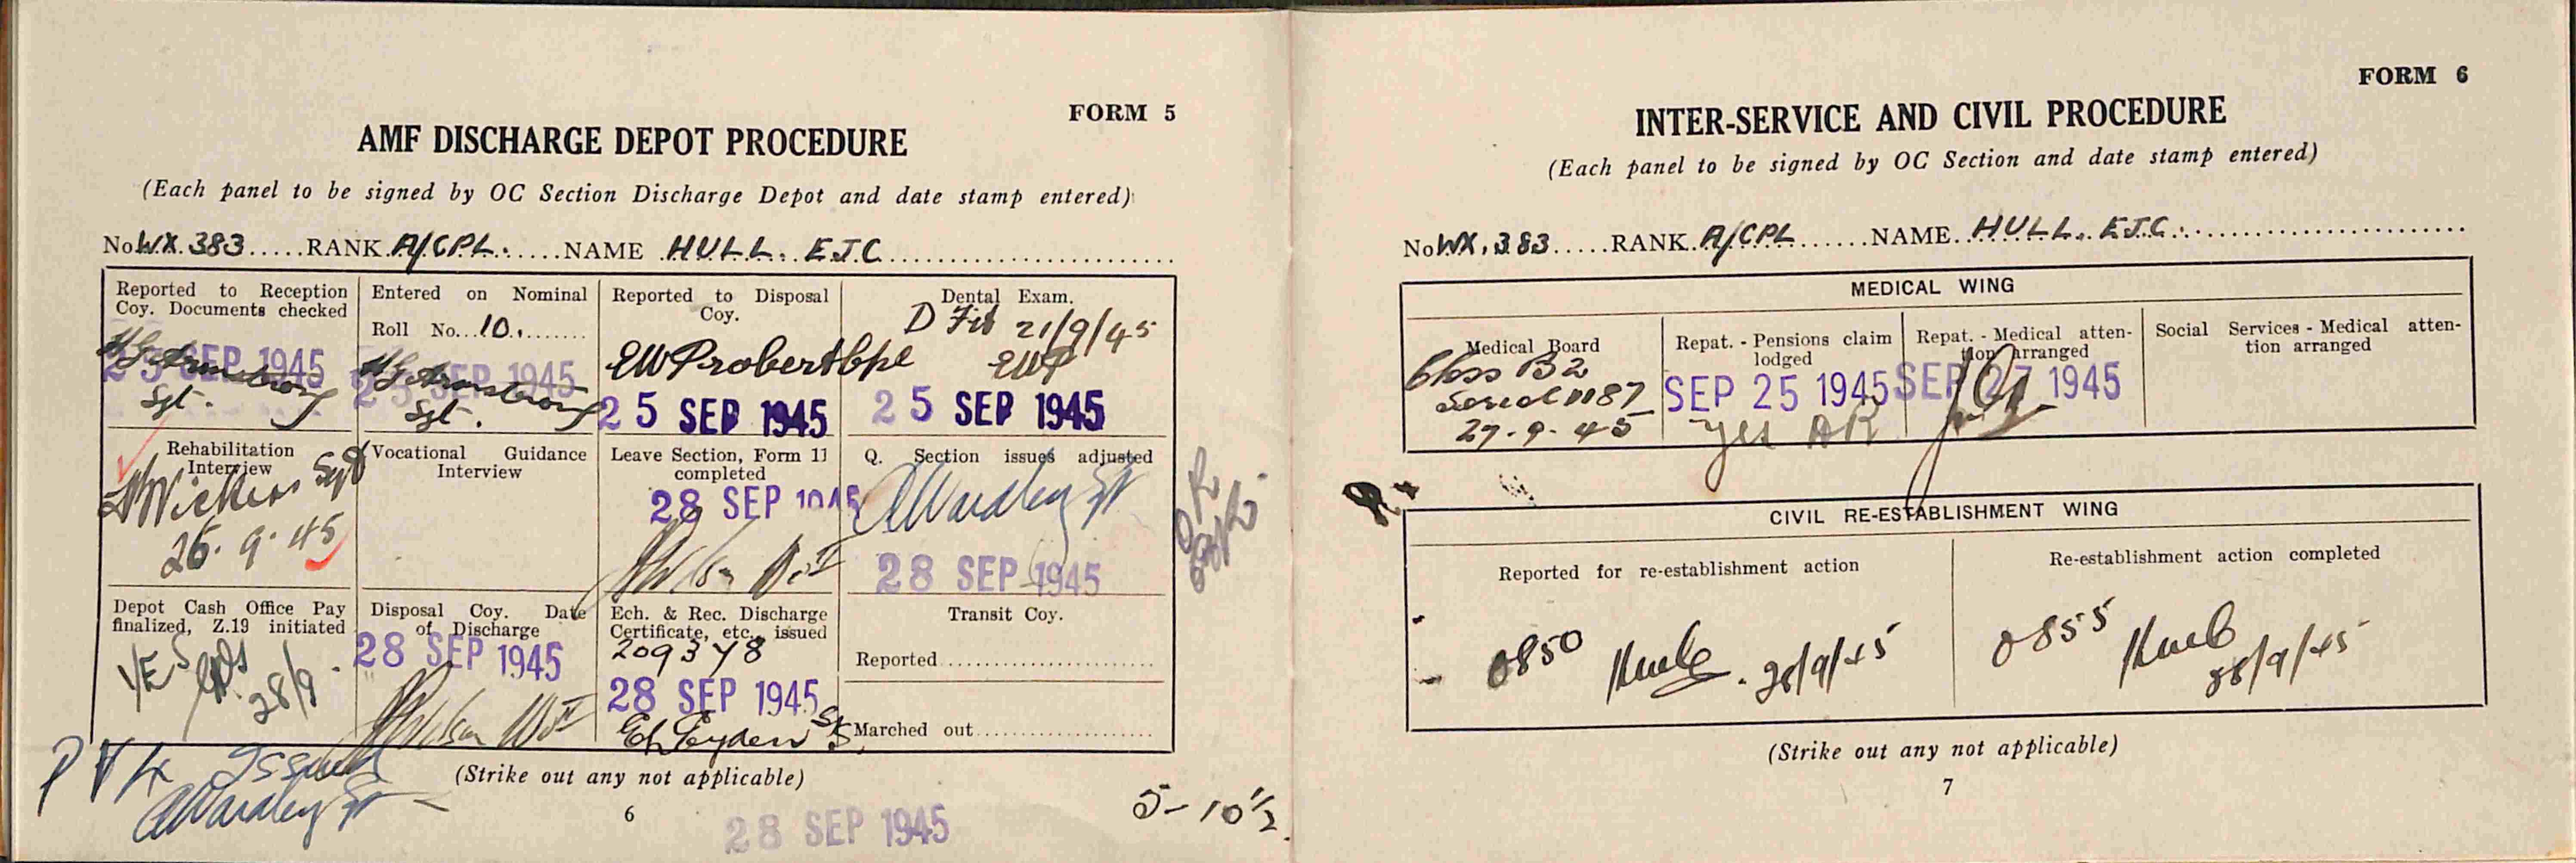 FORM 5
AMF DISCHARGE DEPOT PROCEDURE
(Each panel to be signed by OC Section Discharge Depot and date stamp entered)
No WX. 383.....RANK A/CPL.......NAME HULL. E.J.C.
Reported to Reception
Coy. Documents checked
25 SEP 1945
Sgt.
Entered on Nominal
Roll No...10.
25 SEP 1945
Sgt.
Reported to Disposal
Coy.
EW Probert Cpl
25 SEP 1945
Dental Exam.
D Fit 21/9/45
EWP
25 SEP 1945
Rehabilitation
Interview
Sgt
26.9.45
Vocational Guidance
Interview
Leave Section, Form 11
completed
28 SEP 1945
Q. Section issues adjusted
28 SEP 1945
Depot Cash Office Pay
finalized, Z.19 initiated
YES
28/9.
Disposal Coy. Date
of Discharge
28 SEP 1945
Ech. & Rec. Discharge
Certificate, etc., issued
209378
28 SEP 1945
Transit Coy.
Reported
Marched out
P V 4 Issued
(Strike out any not applicable)
6
28 SEP 1945
5-10½
FORM 6
INTER-SERVICE AND CIVIL PROCEDURE
(Each panel to be signed by OC Section and date stamp entered)
No WX. 383.....RANK A/CPL.......NAME HULL. E.J.C.
MEDICAL WING
Medical Board
Class B2
Serial 1187
27.9.45
Repat. - Pensions claim
lodged
SEP 25 1945
yes AR
Repat. - Medical atten-
tion arranged
SEP 27 1945
Social Services - Medical atten-
tion arranged
CIVIL RE-ESTABLISHMENT WING
Reported for re-establishment action
0850
28/9/45
Re-establishment action completed
0855
28/9/45
(Strike out any not applicable)
7